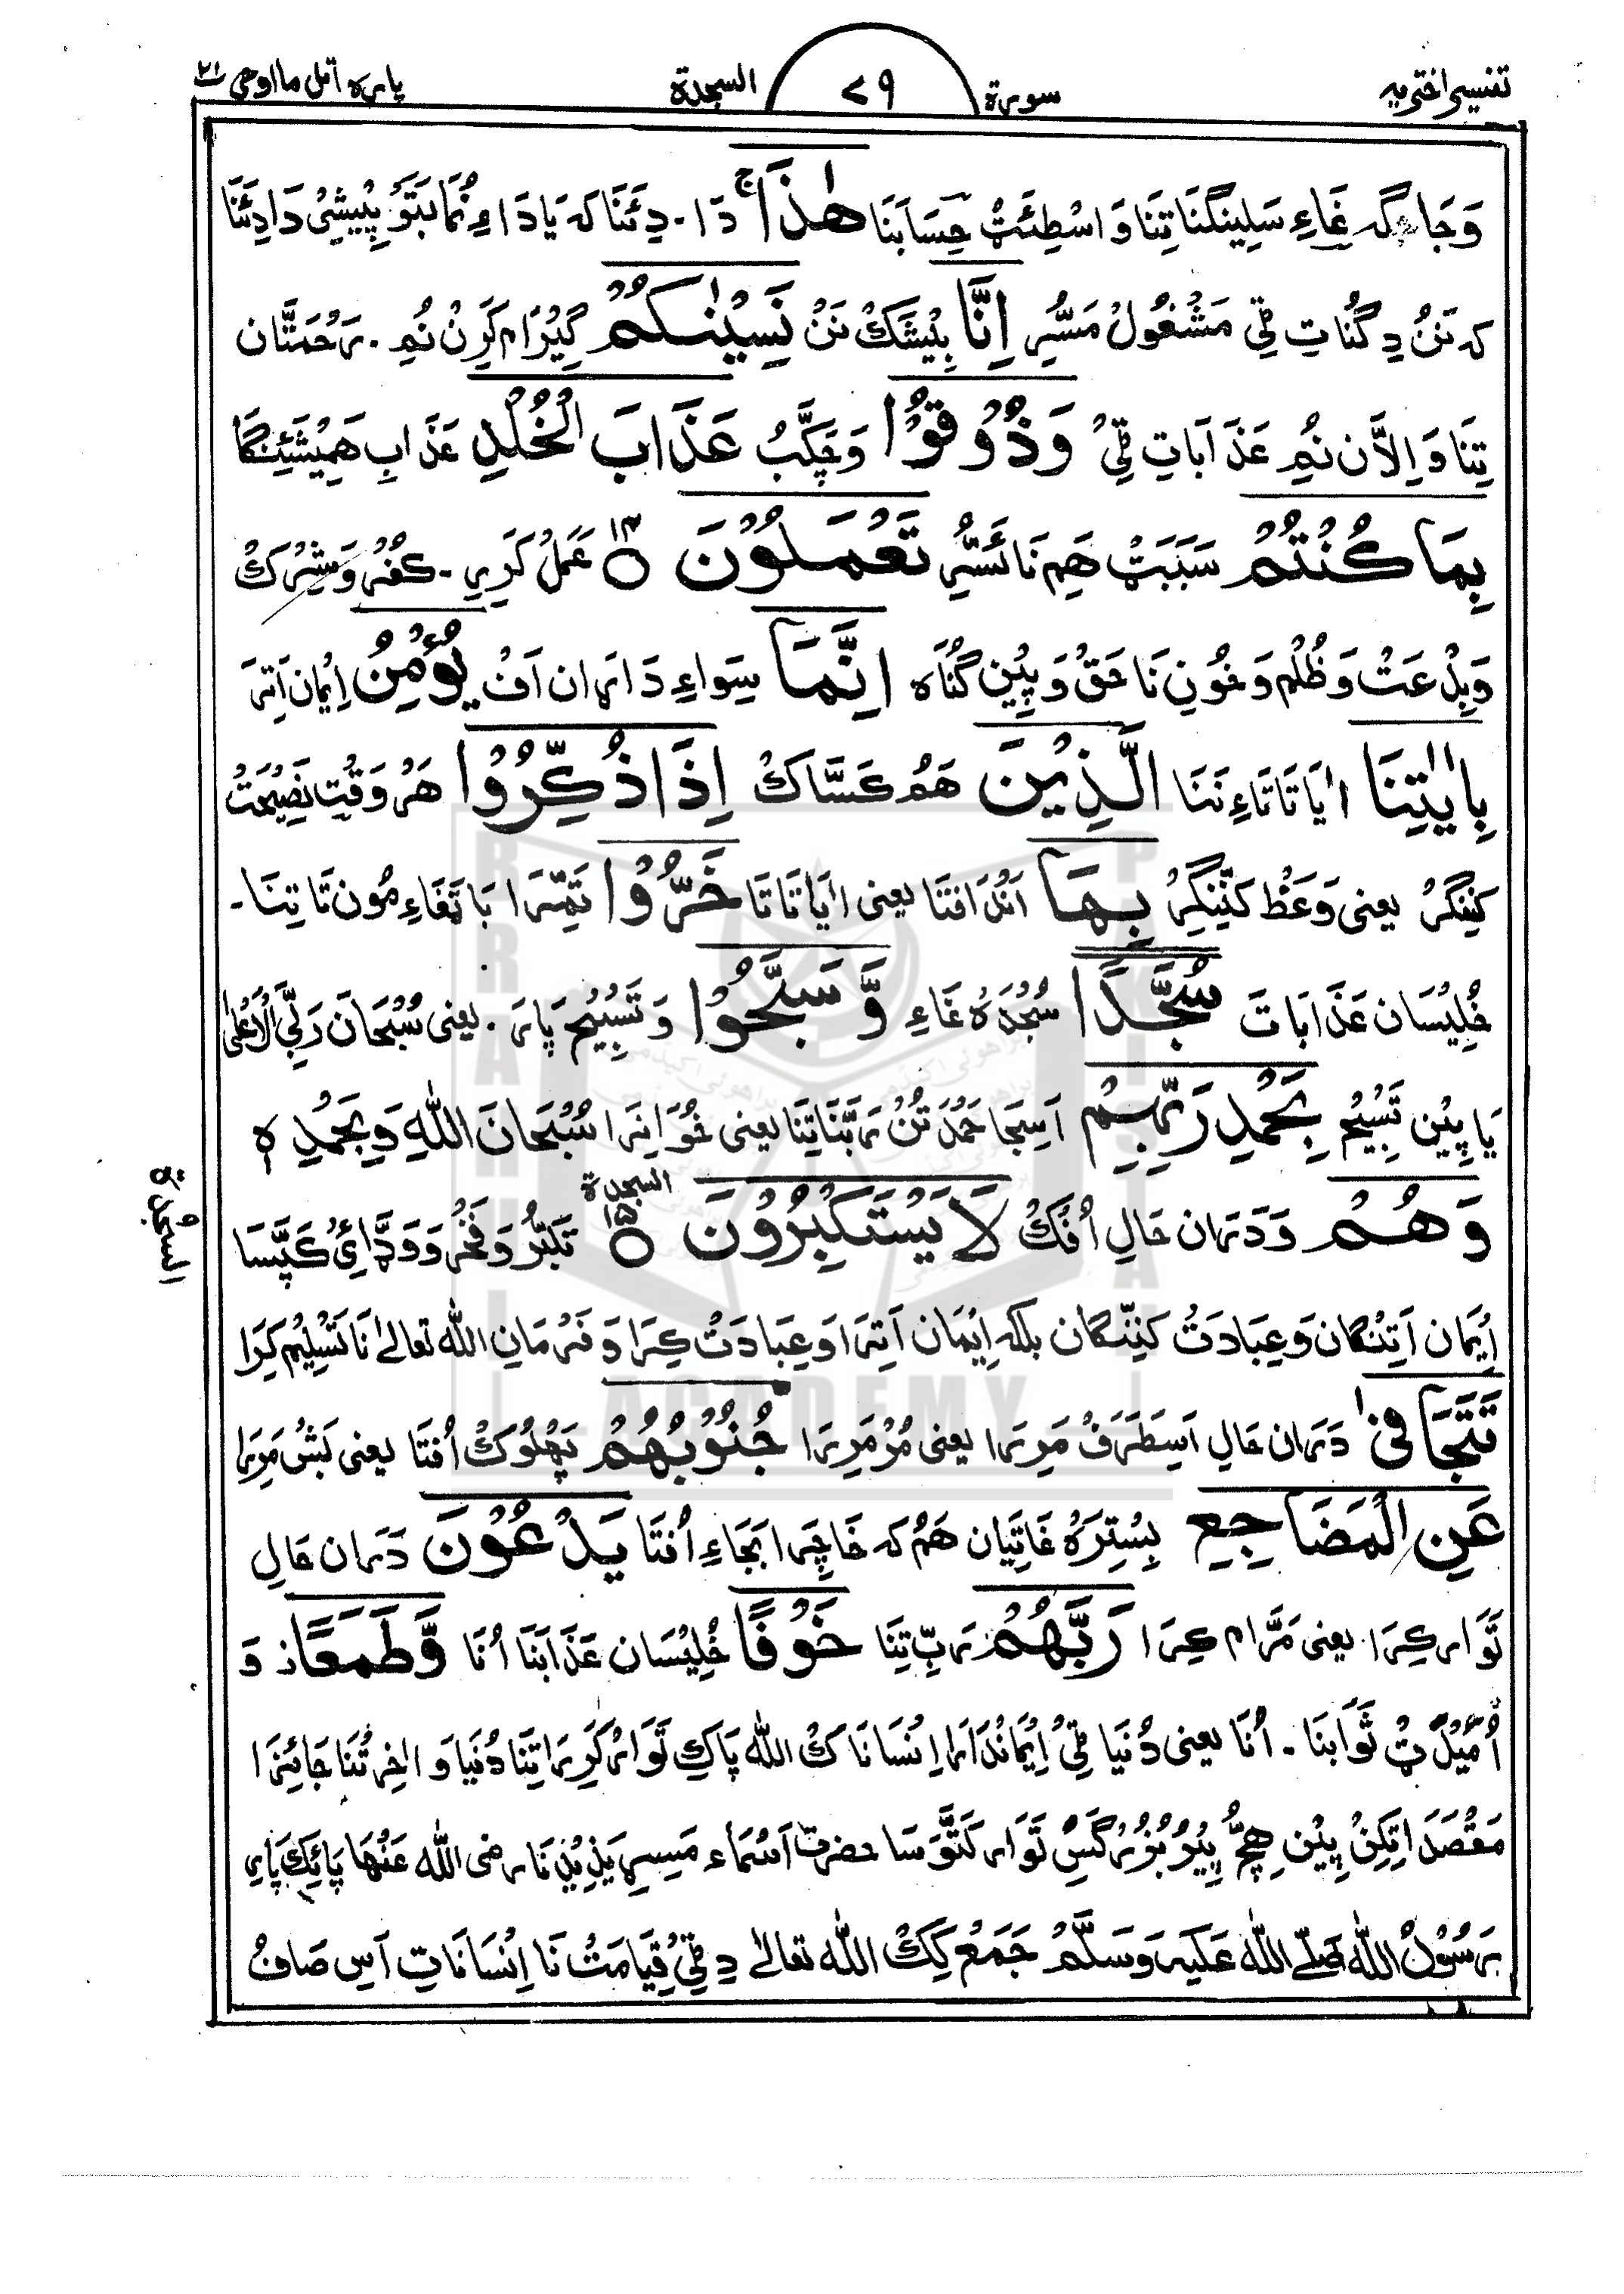 تفسیر اختریہ سورۃ ٧٩ السجدۃ پارہ اتل ما اوحی ٢١
وَجَاگہ غَاءِ سَلِینگنَا تِنَا وَاسْطِئَتْ حِسَابَنَا هٰذَا ج دَا۔ دِئَنَا کہ یَادَاءِ نُمَا بَتَوْ پِیشِیْ دَا دِئَنَا
کہ نَنْ دِ گُنَاتِ ٹِی مَشْغُولْ مَسُّرِ اِنَّا بِیْشَكْ نَنْ نَسِیْنٰكُمْ گِیْرَامْ كَرِنْ نُمِ۔ رَحْمَتَّان
تِنَا وَاِلَّان نُمِ عَذَابَاتِ ٹِیْ وَذُوْقُوْا وَچَكَّبْ عَذَابَ الْخُلْدِ عَذَابِ هَمِیْشَئِنگَا
بِمَا كُنْتُمْ سَبَبَتْ هَمِ نَا ئَسُّرِ تَعْمَلُوْنَ ۝١٣ عَمَلْ كَرِیرِ۔ كُفْرُ وَشِرْكْ
وَبِدْعَتْ وَظُلْم وَخُونِ نَاحَقْ وَپِیْنِ گُنَاه اِنَّمَا سِوَاءِ دَارَان اَفْ یُؤْمِنُ اِیْمَان اَتِرَ
بِاٰیٰتِنَا اٰیَاتَاتَاءِ نَنَا الَّذِیْنَ هَمْ كَسَّاكْ اِذَا ذُكِّرُوْا هَرْ وَقْتِ نَصِیْحَتْ
كِنِّنگِرْ یعنی وَعَظْ كِنِّنگِرْ بِهَا اَنْدَافتَا یعنی اٰیَاتَاتَا خَرُّوْا تَمِّرَا بَا تَغَاءِ مُون تَا تِنَا۔
خُلِیْسَان عَذَابَاتَ سُجَّدًا سُجْدَه غَاءِ وَّ سَبَّحُوْا وَتَسْبِیْح پَارَ۔ یعنی سُبْحَانَ رَبِّیَ الْاَعْلٰی
یَا پِیْنِ تَسْبِیْح بِحَمْدِ رَبِّهِمْ اَسِیجَا حَمْدَتُنْ رَبَّنَا تِنَا یعنی خُوَانِرَا سُبْحَانَ اللّٰهِ وَبِحَمْدِ ه
وَهُمْ وَدَرَان حَالِ اُفْكْ لَا یَسْتَكْبِرُوْنَ ۝١٥ السجدۃ تَكَبُّرْ وَفَخْرْ وَوَڈَّائِیْ كَپَّسَا
السجدۃ
اِیْمَان اَتِنْگان وَعِبَادَتْ كَنِنّگان بلکہ اِیْمَان اَتِرَا وَعِبَادَتْ كِرَا وَ فَرْمَانِ اللّٰه تعالیٰ نَا تَسْلِیْم كَرَا
تَتَجَافٰی دَرَان حَالِ اَسِ طَرَفْ مَرِرَا یعنی مُرْ مَرِرَا جُنُوْبُهُمْ پَهْلُوكْ اُفتَا یعنی بَشْ مَرِرَا
عَنِ الْمَضَاجِعِ بِسْتِرَه غَاتِیَان هَمْ كہ خَاچِرَا بَجَاءِ اُفتَا یَدْعُوْنَ دَرَان حَالِ
تَوَّار كِرَا یعنی مَرَّام كِرَا رَبَّهُمْ رَبِّ تِنَا خَوْفًا خُلِیْسَان عَذَابَنَا اُنَا وَّطَمَعًا ز وَ
اُمِّیْدَ تْ ثَوَابنَا۔ اُنَا یعنی دُنْیَا ٹِیْ اِیْمَانْدَارَا اِنْسَانَاكْ اللّٰه پَاكِ تَوَارْ كَرِیرَا تِنَا دُنْیَا وَ اٰخِرْتُنَا جَائِزَا
مَقْصَدَاتِكِنْ پِیْن هِچُّ پِیْرُ بُزُرْگَسْ تَوَار كَتَوَسَا حضرت اَسْمَاء مَسِیرِ یَزِیْدْ نَا رضی اللّٰه عَنْهَا پَائِكْ پَارِ
رَسُوْلُ اللّٰه صَلّی اللّٰه عَلَیہ وَسَلَّمْ جَمَعْ كِكْ اللّٰه تعالیٰ دِ ٹِیْ قِیَامَتْ نَا اِنْسَانَاتِ اَسِ صَافْ
BRAHUI ACADEMY PAKISTAN